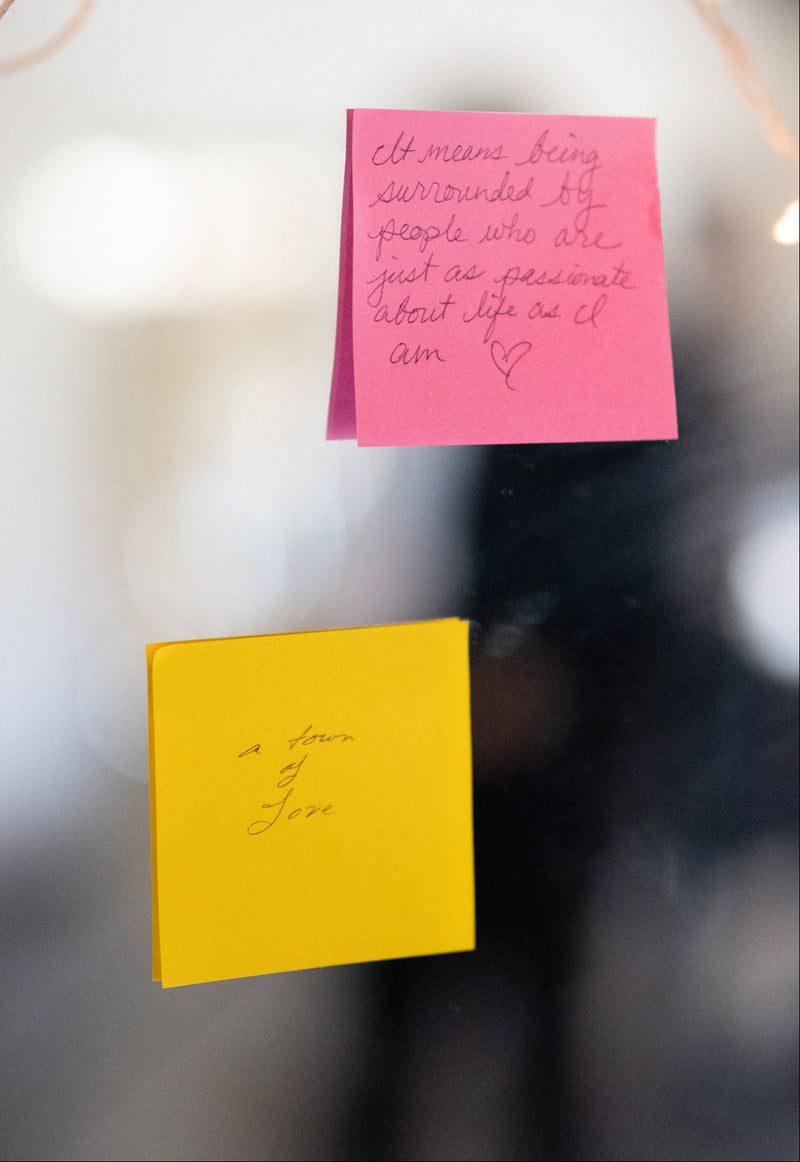 It means being
surrounded by
people who are
just as passionate
about life as I
am ♡
a town
of
Love